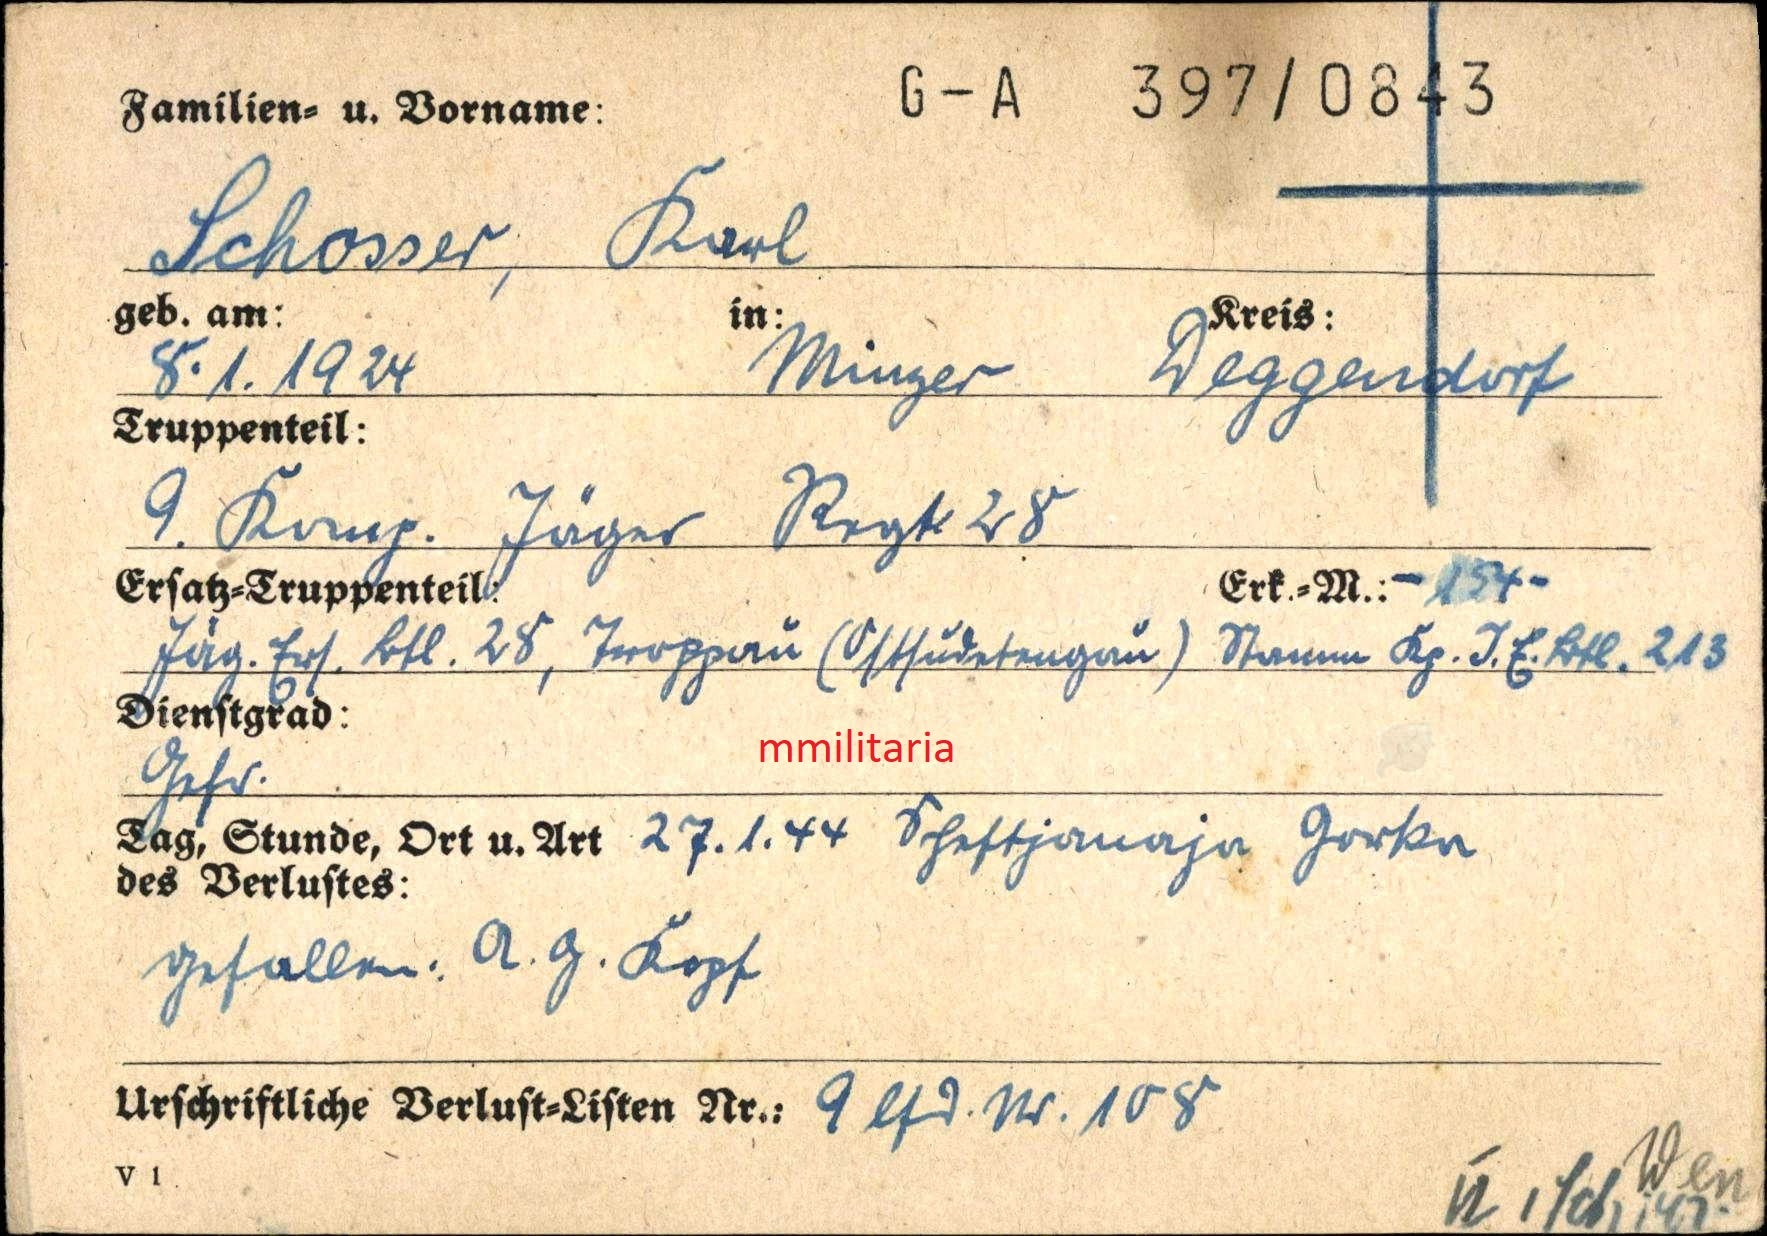 G-A 397/0843
Familien- u. Vorname:
Schosser, Karl
geb. am: in: Kreis:
8.1.1924 Winzer Deggendorf
Truppenteil:
9. Komp. Jäger Regt 28
Ersatz-Truppenteil: Erk.-M.: -154-
Jäg. Ers. Btl. 28, Troppau (Ostsudetengau) Stamm Kp. I.E. Btl. 213
Dienstgrad:
Gefr.
mmilitaria
Tag, Stunde, Ort u. Art 27.1.44 Scheftjanaja Gorka
des Verlustes:
gefallen: A.G. Kopf
Urschriftliche Verlust-Listen Nr.: 9 lfd. Nr. 108
V 1